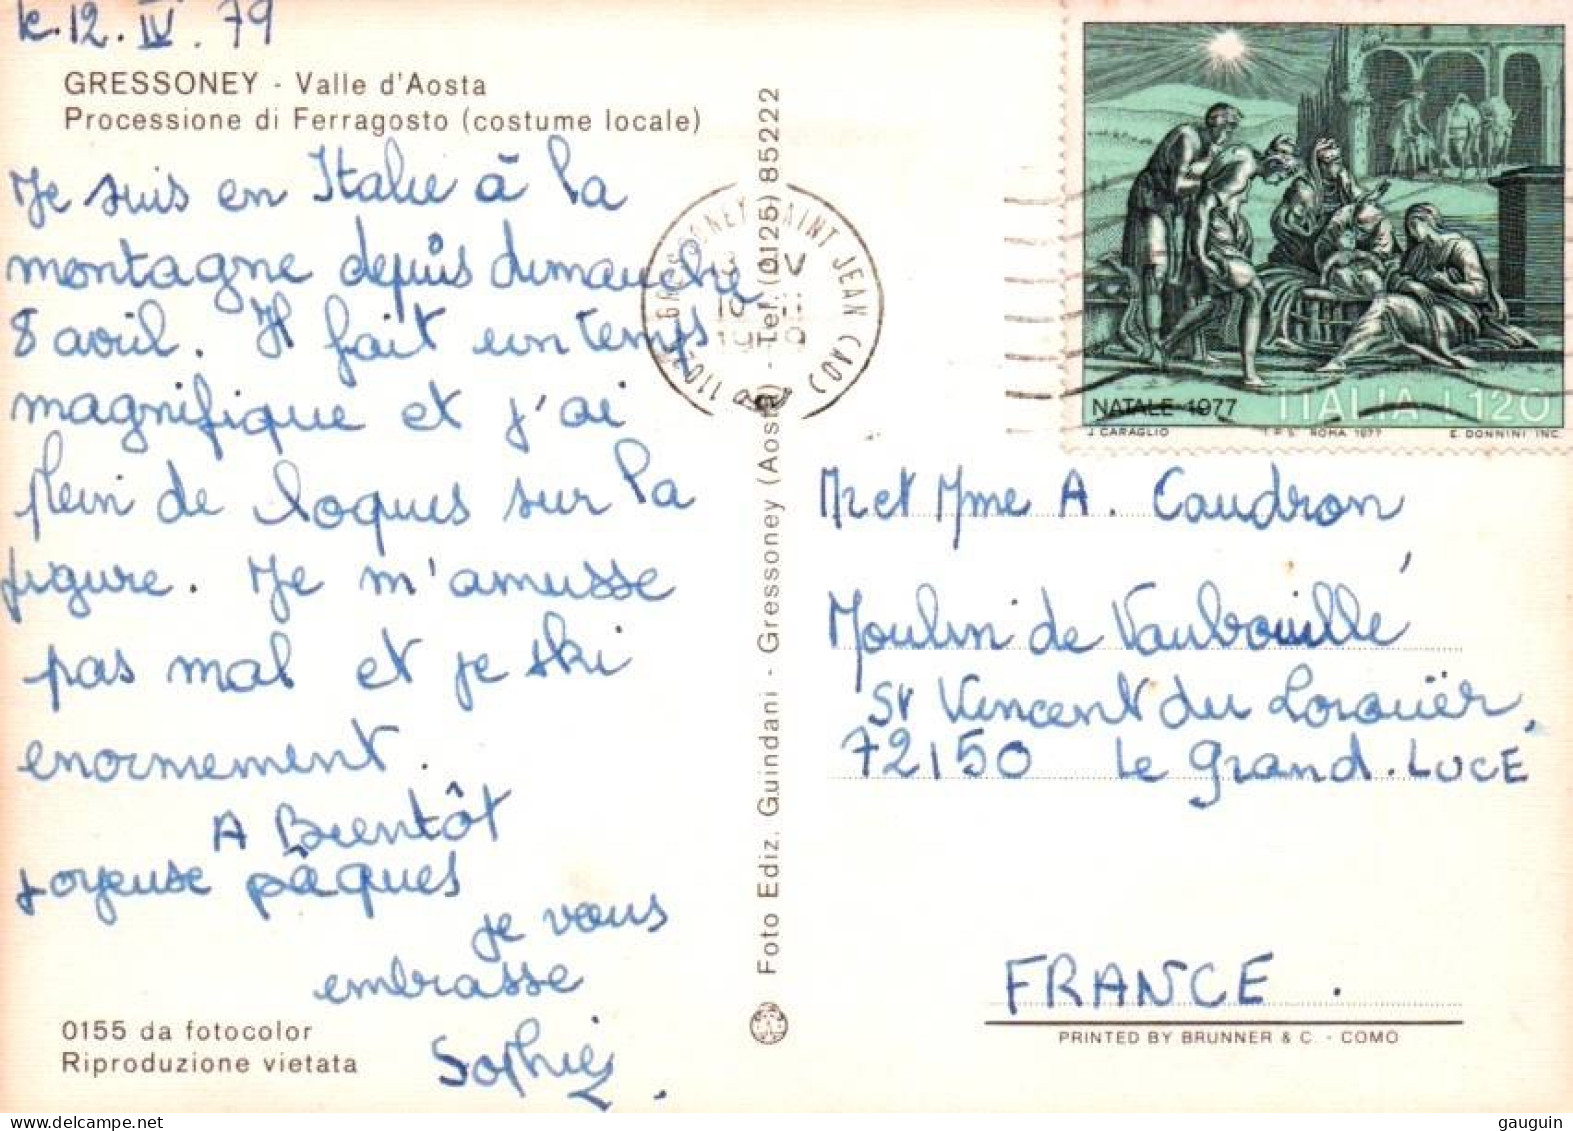 le 12. IV. 79
GRESSONEY - Valle d'Aosta
Processione di Ferragosto (costume locale)
Je suis en Italie à la
montagne depuis dimanche
8 avril. Il fait un temps
magnifique et j'ai
plein de cloques sur la
figure. Je m'amusse
pas mal et je ski
enormement.
A Bientôt
Joyeuse pâques
je vous
embrasse
Sophie.
0155 da fotocolor
Riproduzione vietata
Foto Ediz. Guindani - Gressoney (Aosta) - Tel. (0125) 85222
11025 GRESSONEY SAINT JEAN (AO)
NATALE 1977 ITALIA L. 120
J. CARAGLIO I.P.S. ROMA 1977 E. DONNINI INC.
Mr et Mme A. Caudron,
Moulin de Vaubouillé
St Vincent du Lorouër,
72150 Le Grand. LUCÉ
FRANCE.
PRINTED BY BRUNNER & C. - COMO
gauguin
delcampe.net